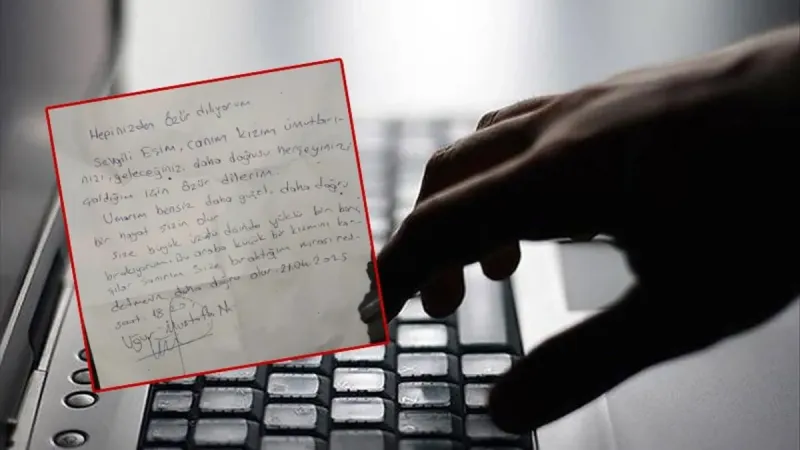 Hepinizden özür diliyorum
Sevgili Eşim, canım kızım umutları-
nızı, geleceğinizi daha doğrusu herşeyinizi
çaldığım için özür dilerim.
Umarım bensiz daha güzel, daha doğru
bir hayat sizin olur
size büyük yüklü bir borç
bırakıyorum. Bu araba küçük bir kısmını kar-
şılar sanırım size bıraktığım mirası red-
detmeniz daha doğru olur. 21.04.2025
saat: 18:20
Uğur Mustafa N.